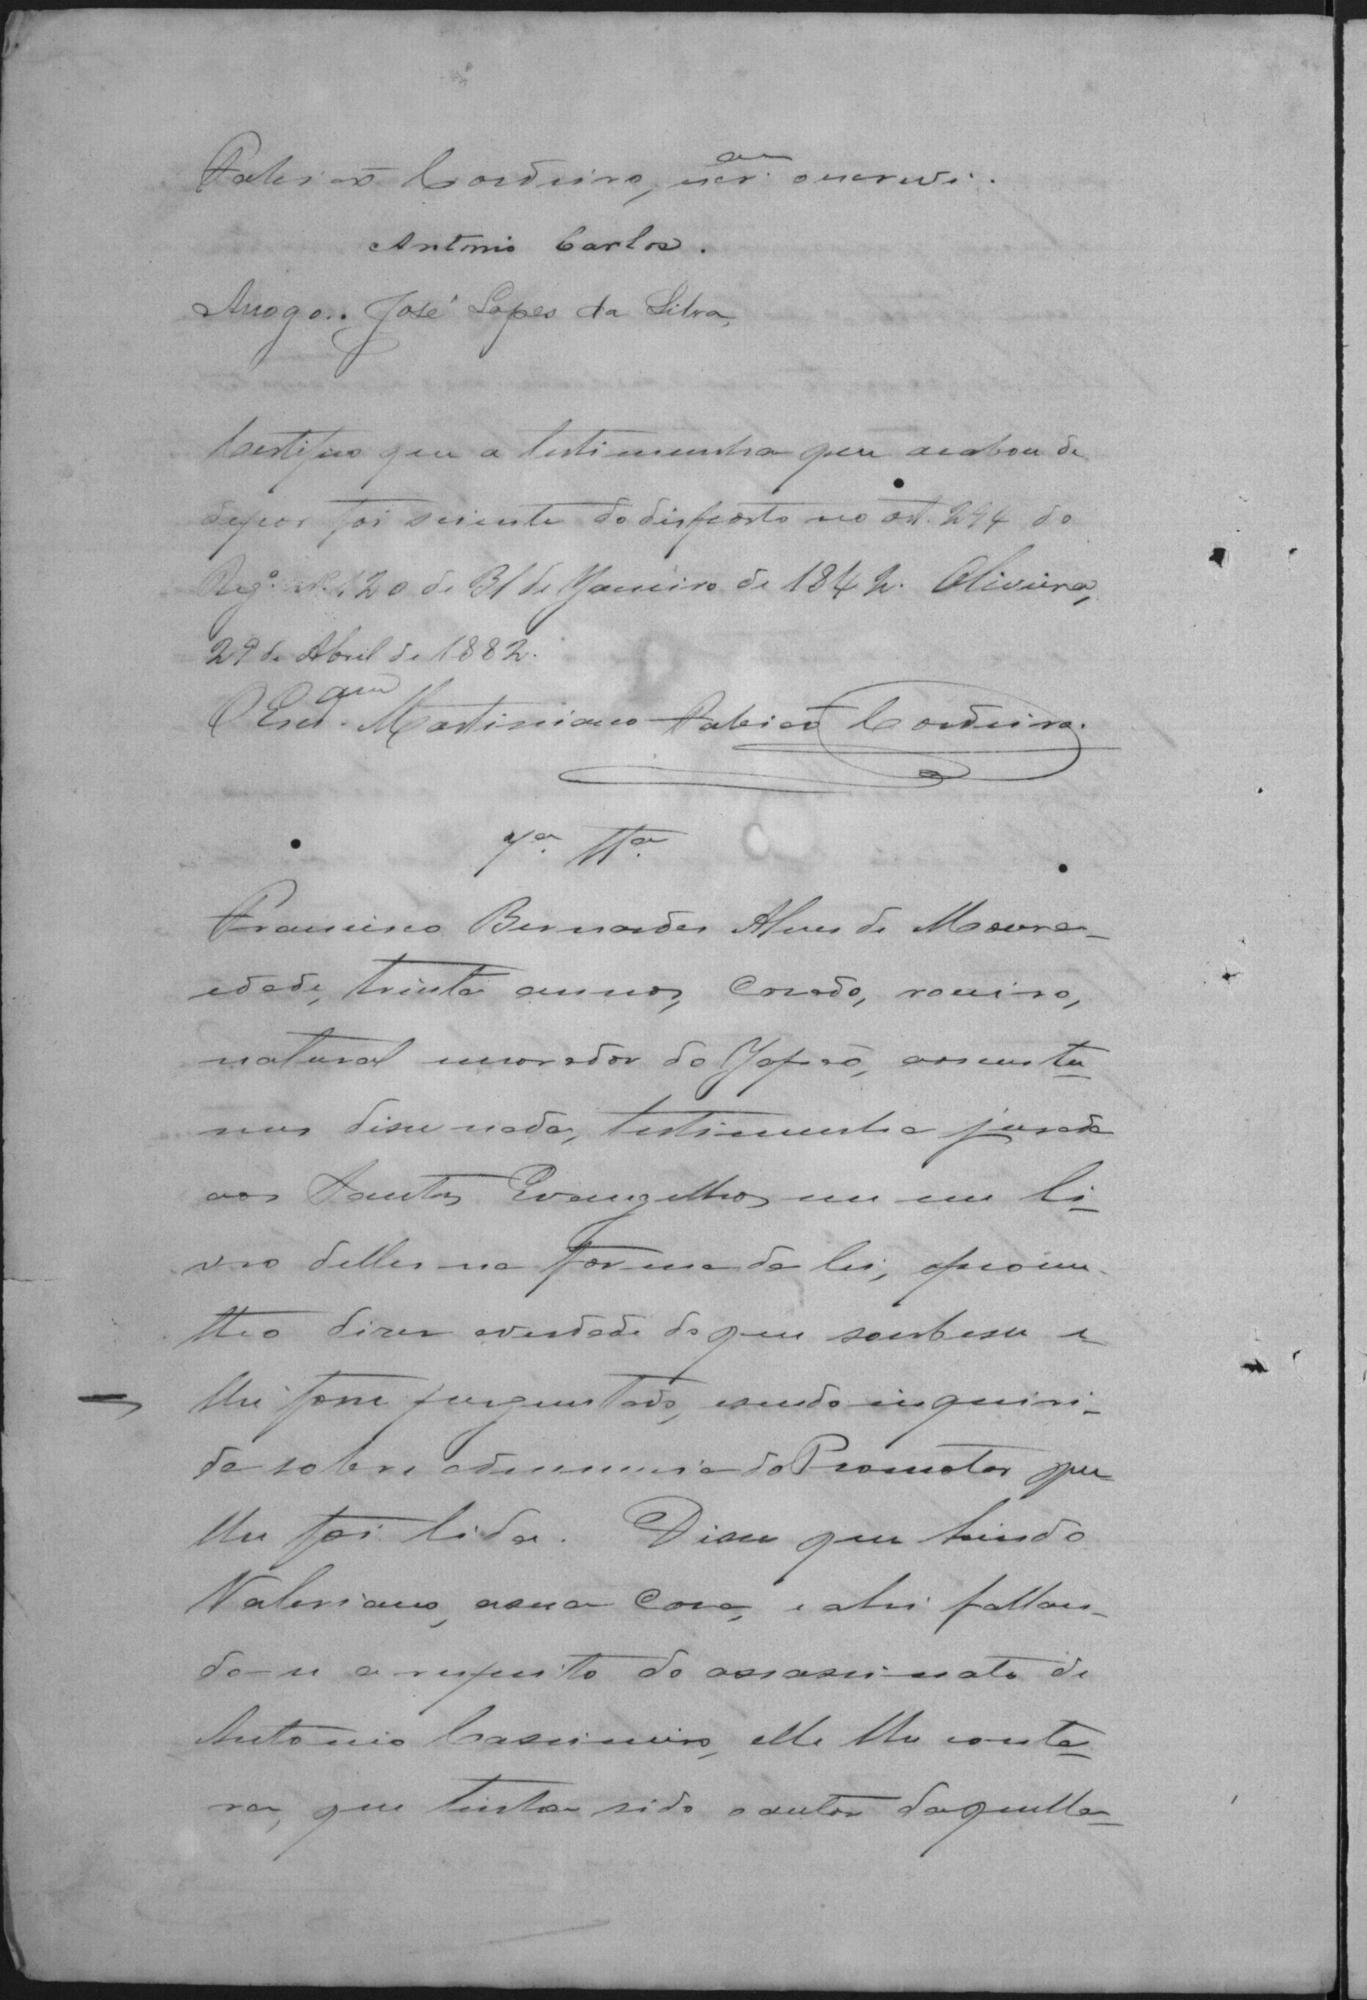 Fabião Cordeiro, escr.am o escrevi.
Antonio Carlos.
Arogo. José Lopes da Silva,
Certifico que a testimunha que acabou de
depor foi sciente do disposto no art. 294 do
Reg.º N. 120 de 31 de Janeiro de 1842. Oliveira,
29 de Abril de 1882.
O Escr.am Martiniano Fabião Cordeiro.
7ª Ttª
Francisco Bernardes Alves de Moura
edade, trinta annos, casado, roceiro,
natural e morador do Japão, aos custu-
mes disse nada, testimunha jurada
aos Santos Evangelhos em um li-
vro delles na forma da lei, e prome-
tteo dizer a verdade do que soubesse e
lhe fosse perguntado, e sendo inquiri-
da sobre a denuncia do Promotor que
lhe foi lida. Disse que hindo
Valeriano, a sua casa, e ahi fallan-
do-se a respeito do assassinato de
Antonio Cassimiro, elle lhe conta-
ra, que tinha sido o autor daquella